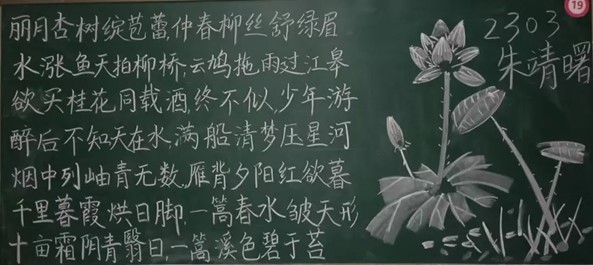 丽月杏树绽芭蕾,仲春柳丝舒绿眉
水涨鱼天拍柳桥,云鸠拖雨过江皋
欲买桂花同载酒,终不似,少年游
醉后不知天在水,满船清梦压星河
烟中列岫青无数,雁背夕阳红欲暮
千里暮霞烘日脚,一篙春水皱天形
十亩霜阴青翳日,一篙溪色碧于苔
2303
朱靖曙
19